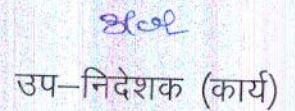 उप–निदेशक (कार्य)